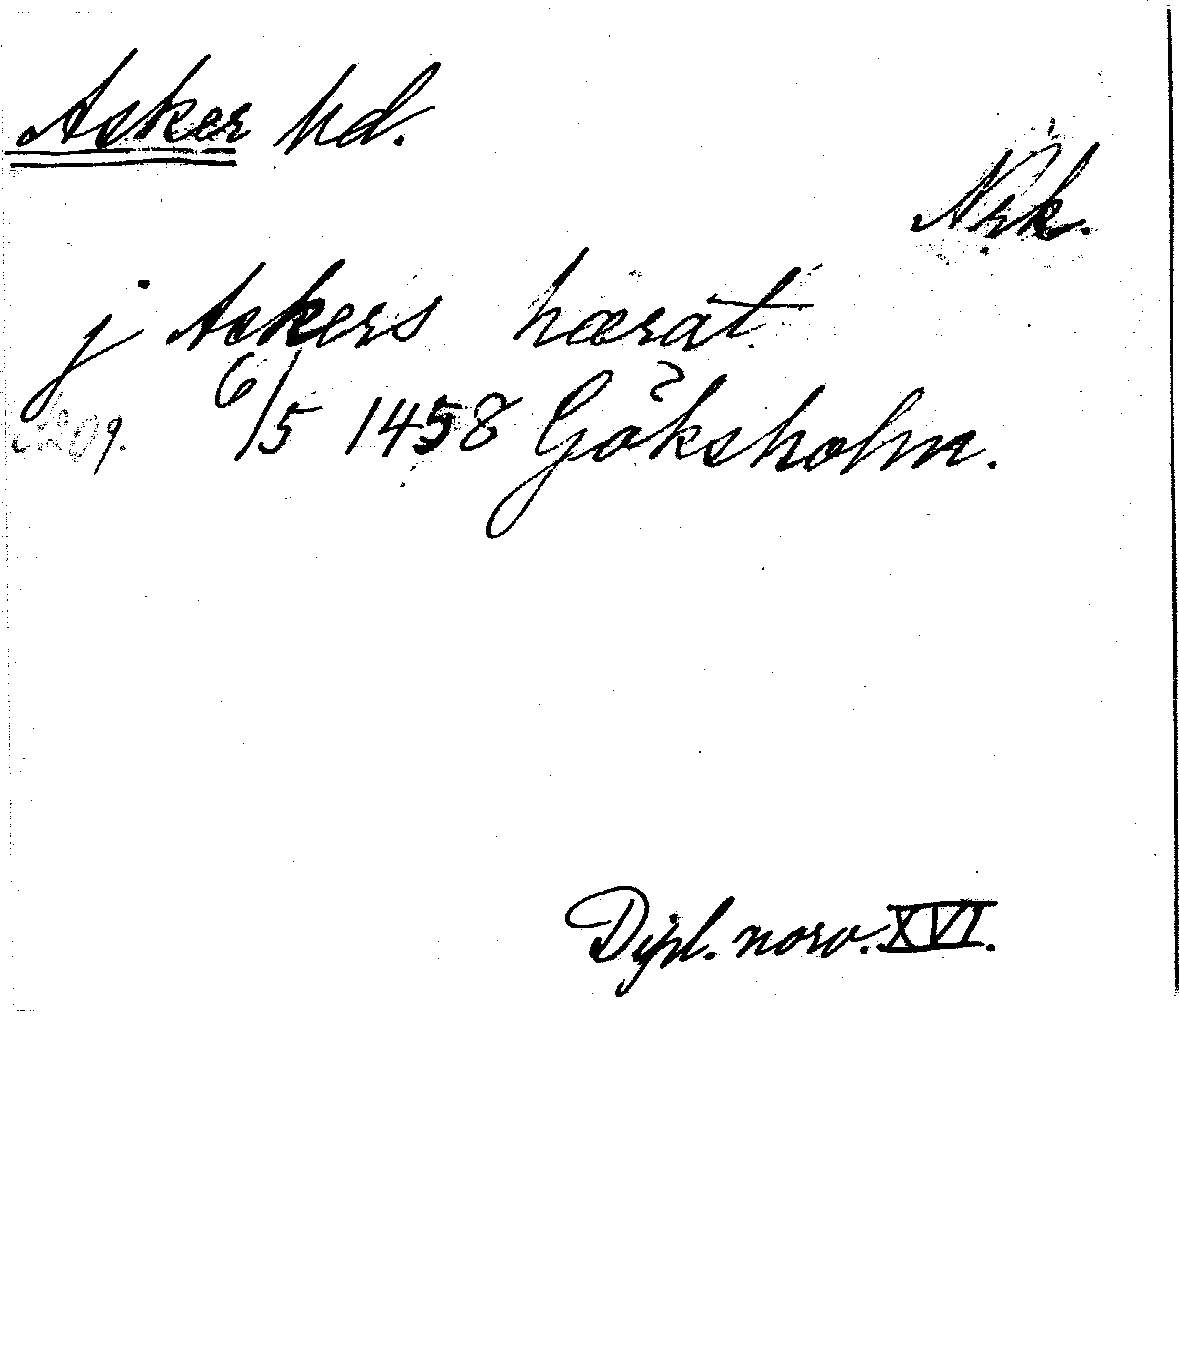 Asker hd.
Nrk.
j Askers hærat
209. 6/5 1458 Göksholm.
Dipl. norv. XVI.